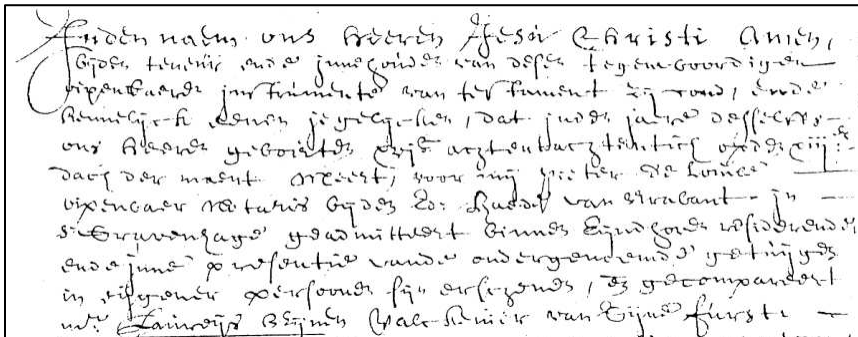 Inden naem ons heeren Jhesu Christi Amen,
bijden teneur ende innehouden van desen tegenwoordigen
openbaeren instrumente van testament zij cond, ende
kennelijck eenen jegelijcken, dat inden jaere desselffs
ons heeren geboorte xvjc achtentachtentich op den xiij en
dach der maent Meert, voor mij Pieter de Louwe
openbaer Notaris bijden Ed: Raede van Brabant in
s'Gravenhage geadmitteert binnen Eijndhoven residerende
ende inne presentie vande ondergenoemde getuijgen
in eijgener persoonen sijn erschenen, en gecompareert
mr. Laureijs Valckenier van Sijne fursti